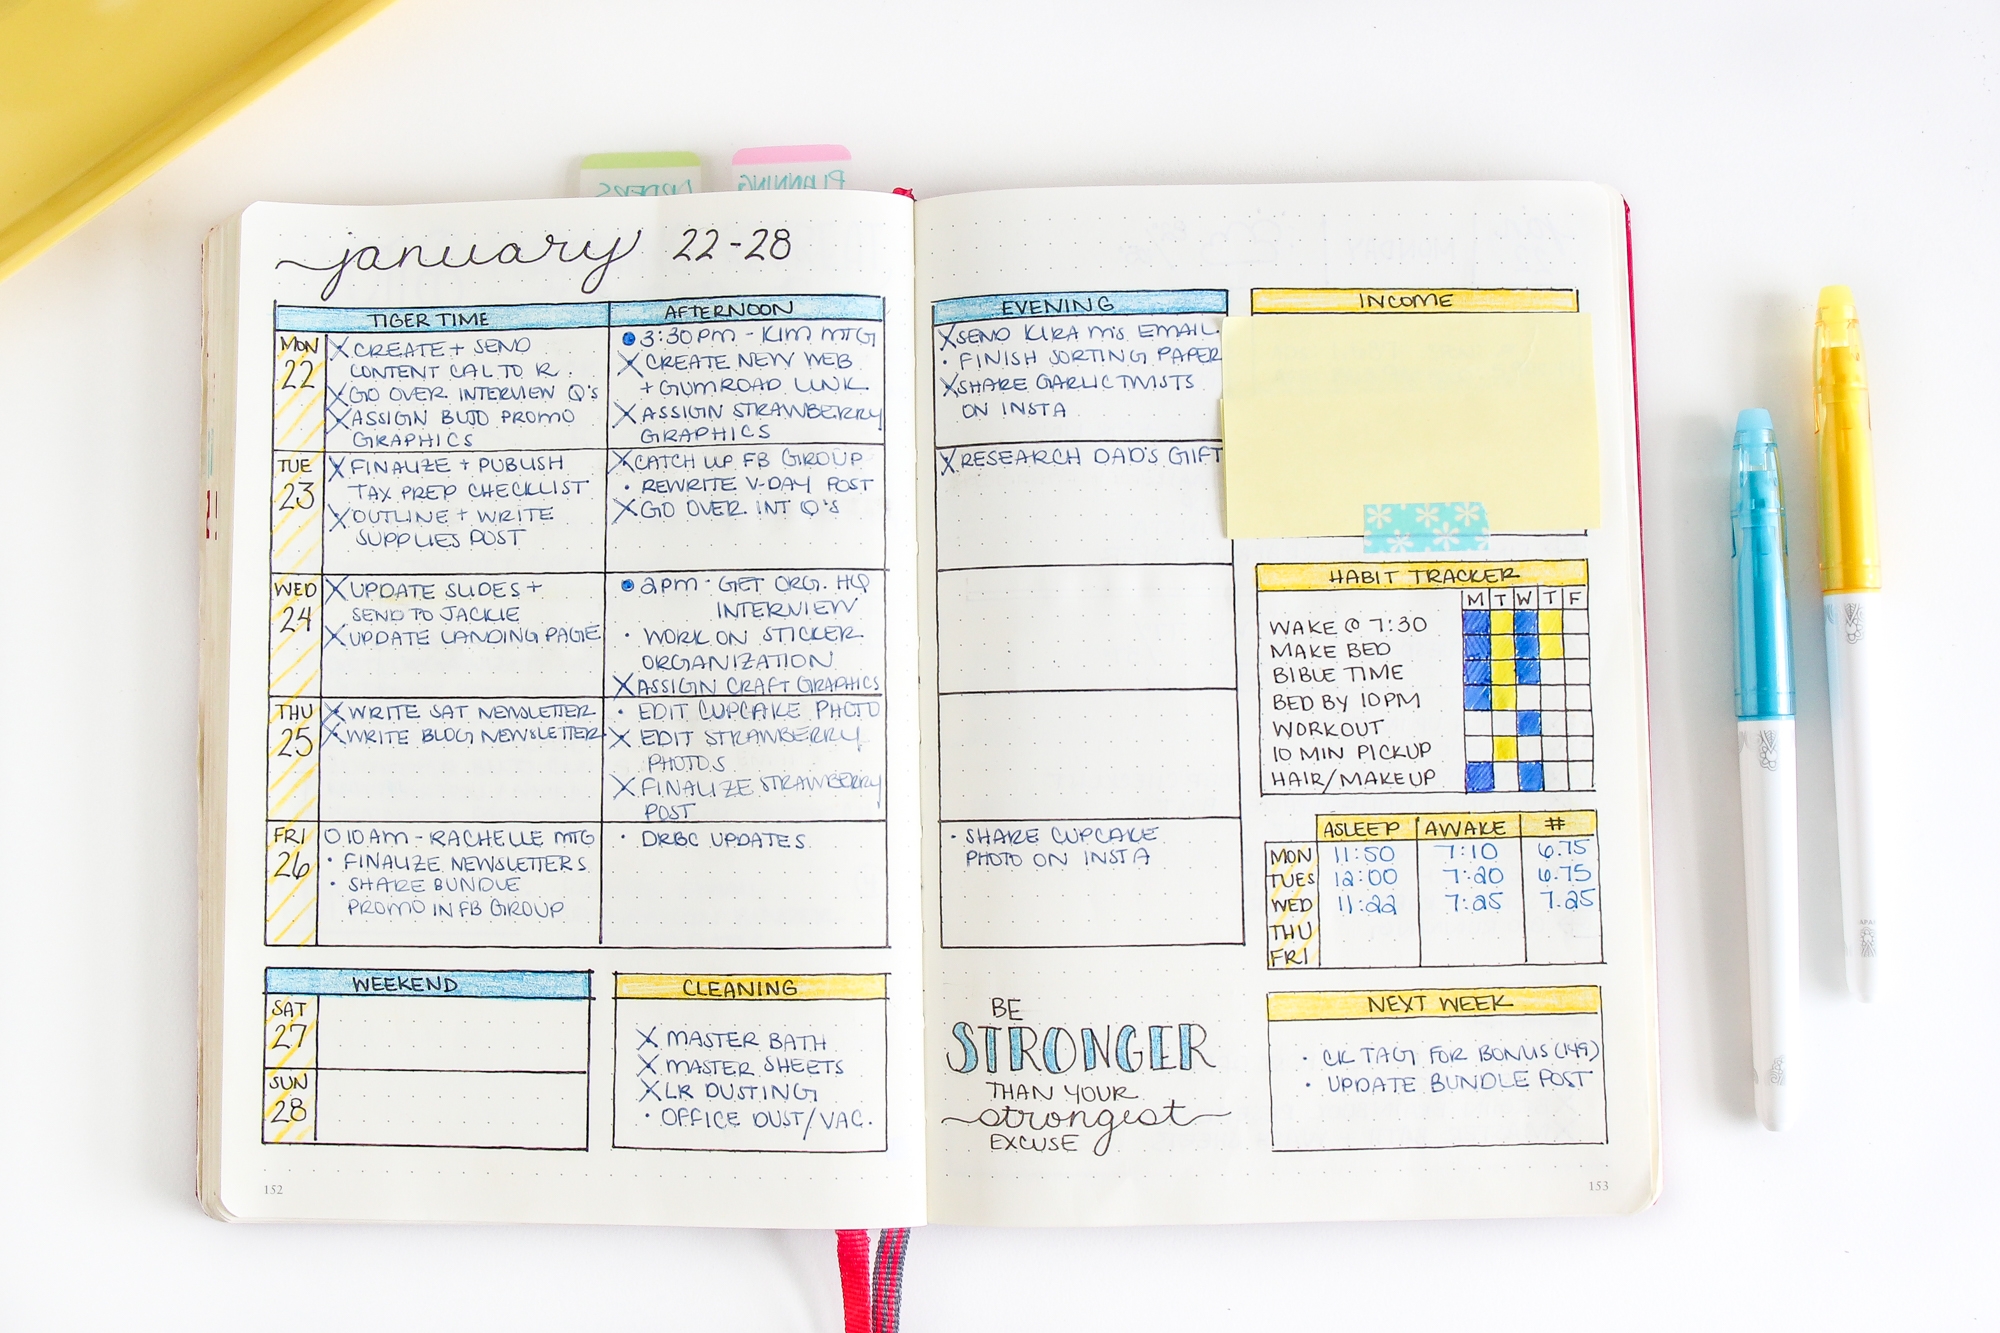 ORDERS
PLANNING
january 22-28
TIGER TIME
AFTERNOON
MON
22
X CREATE + SEND
CONTENT CAL TO R.
X GO OVER INTERVIEW Q'S
X ASSIGN BUJO PROMO
GRAPHICS
● 3:30PM - KIM MTG
X CREATE NEW WEB
+ GUMROAD LINK
X ASSIGN STRAWBERRY
GRAPHICS
TUE
23
X FINALIZE + PUBLISH
TAX PREP CHECKLIST
X OUTLINE + WRITE
SUPPLIES POST
X CATCH UP FB GROUP
• REWRITE V-DAY POST
X GO OVER INT Q'S
WED
24
X UPDATE SLIDES +
SEND TO JACKIE
X UPDATE LANDING PAGE
● 2PM • GET ORG. HQ
INTERVIEW
• WORK ON STICKER
ORGANIZATION
X ASSIGN CRAFT GRAPHICS
THU
25
X WRITE SAT NEWSLETTER
X WRITE BLOG NEWSLETTER
• EDIT CUPCAKE PHOTO
X EDIT STRAWBERRY
PHOTOS
X FINALIZE STRAWBERRY
POST
FRI
26
O 10AM - RACHELLE MTG
• FINALIZE NEWSLETTERS
• SHARE BUNDLE
PROMO IN FB GROUP
• DRBC UPDATES
WEEKEND
SAT
27
SUN
28
CLEANING
X MASTER BATH
X MASTER SHEETS
X LR DUSTING
• OFFICE DUST/VAC.
152
EVENING
X SEND KIRA M'S EMAIL
• FINISH SORTING PAPER
X SHARE GARLIC TWISTS
ON INSTA
X RESEARCH DAD'S GIFT
• SHARE CUPCAKE
PHOTO ON INSTA
BE
STRONGER
THAN YOUR
strongest
EXCUSE
INCOME
HABIT TRACKER
M T W T F
WAKE @ 7:30
MAKE BED
BIBLE TIME
BED BY 10PM
WORKOUT
10 MIN PICKUP
HAIR/MAKEUP
ASLEEP AWAKE #
MON 11:50 7:10 6.75
TUES 12:00 7:20 6.75
WED 11:22 7:25 7.25
THU
FRI
NEXT WEEK
• CK TAG FOR BONUS (149)
• UPDATE BUNDLE POST
153